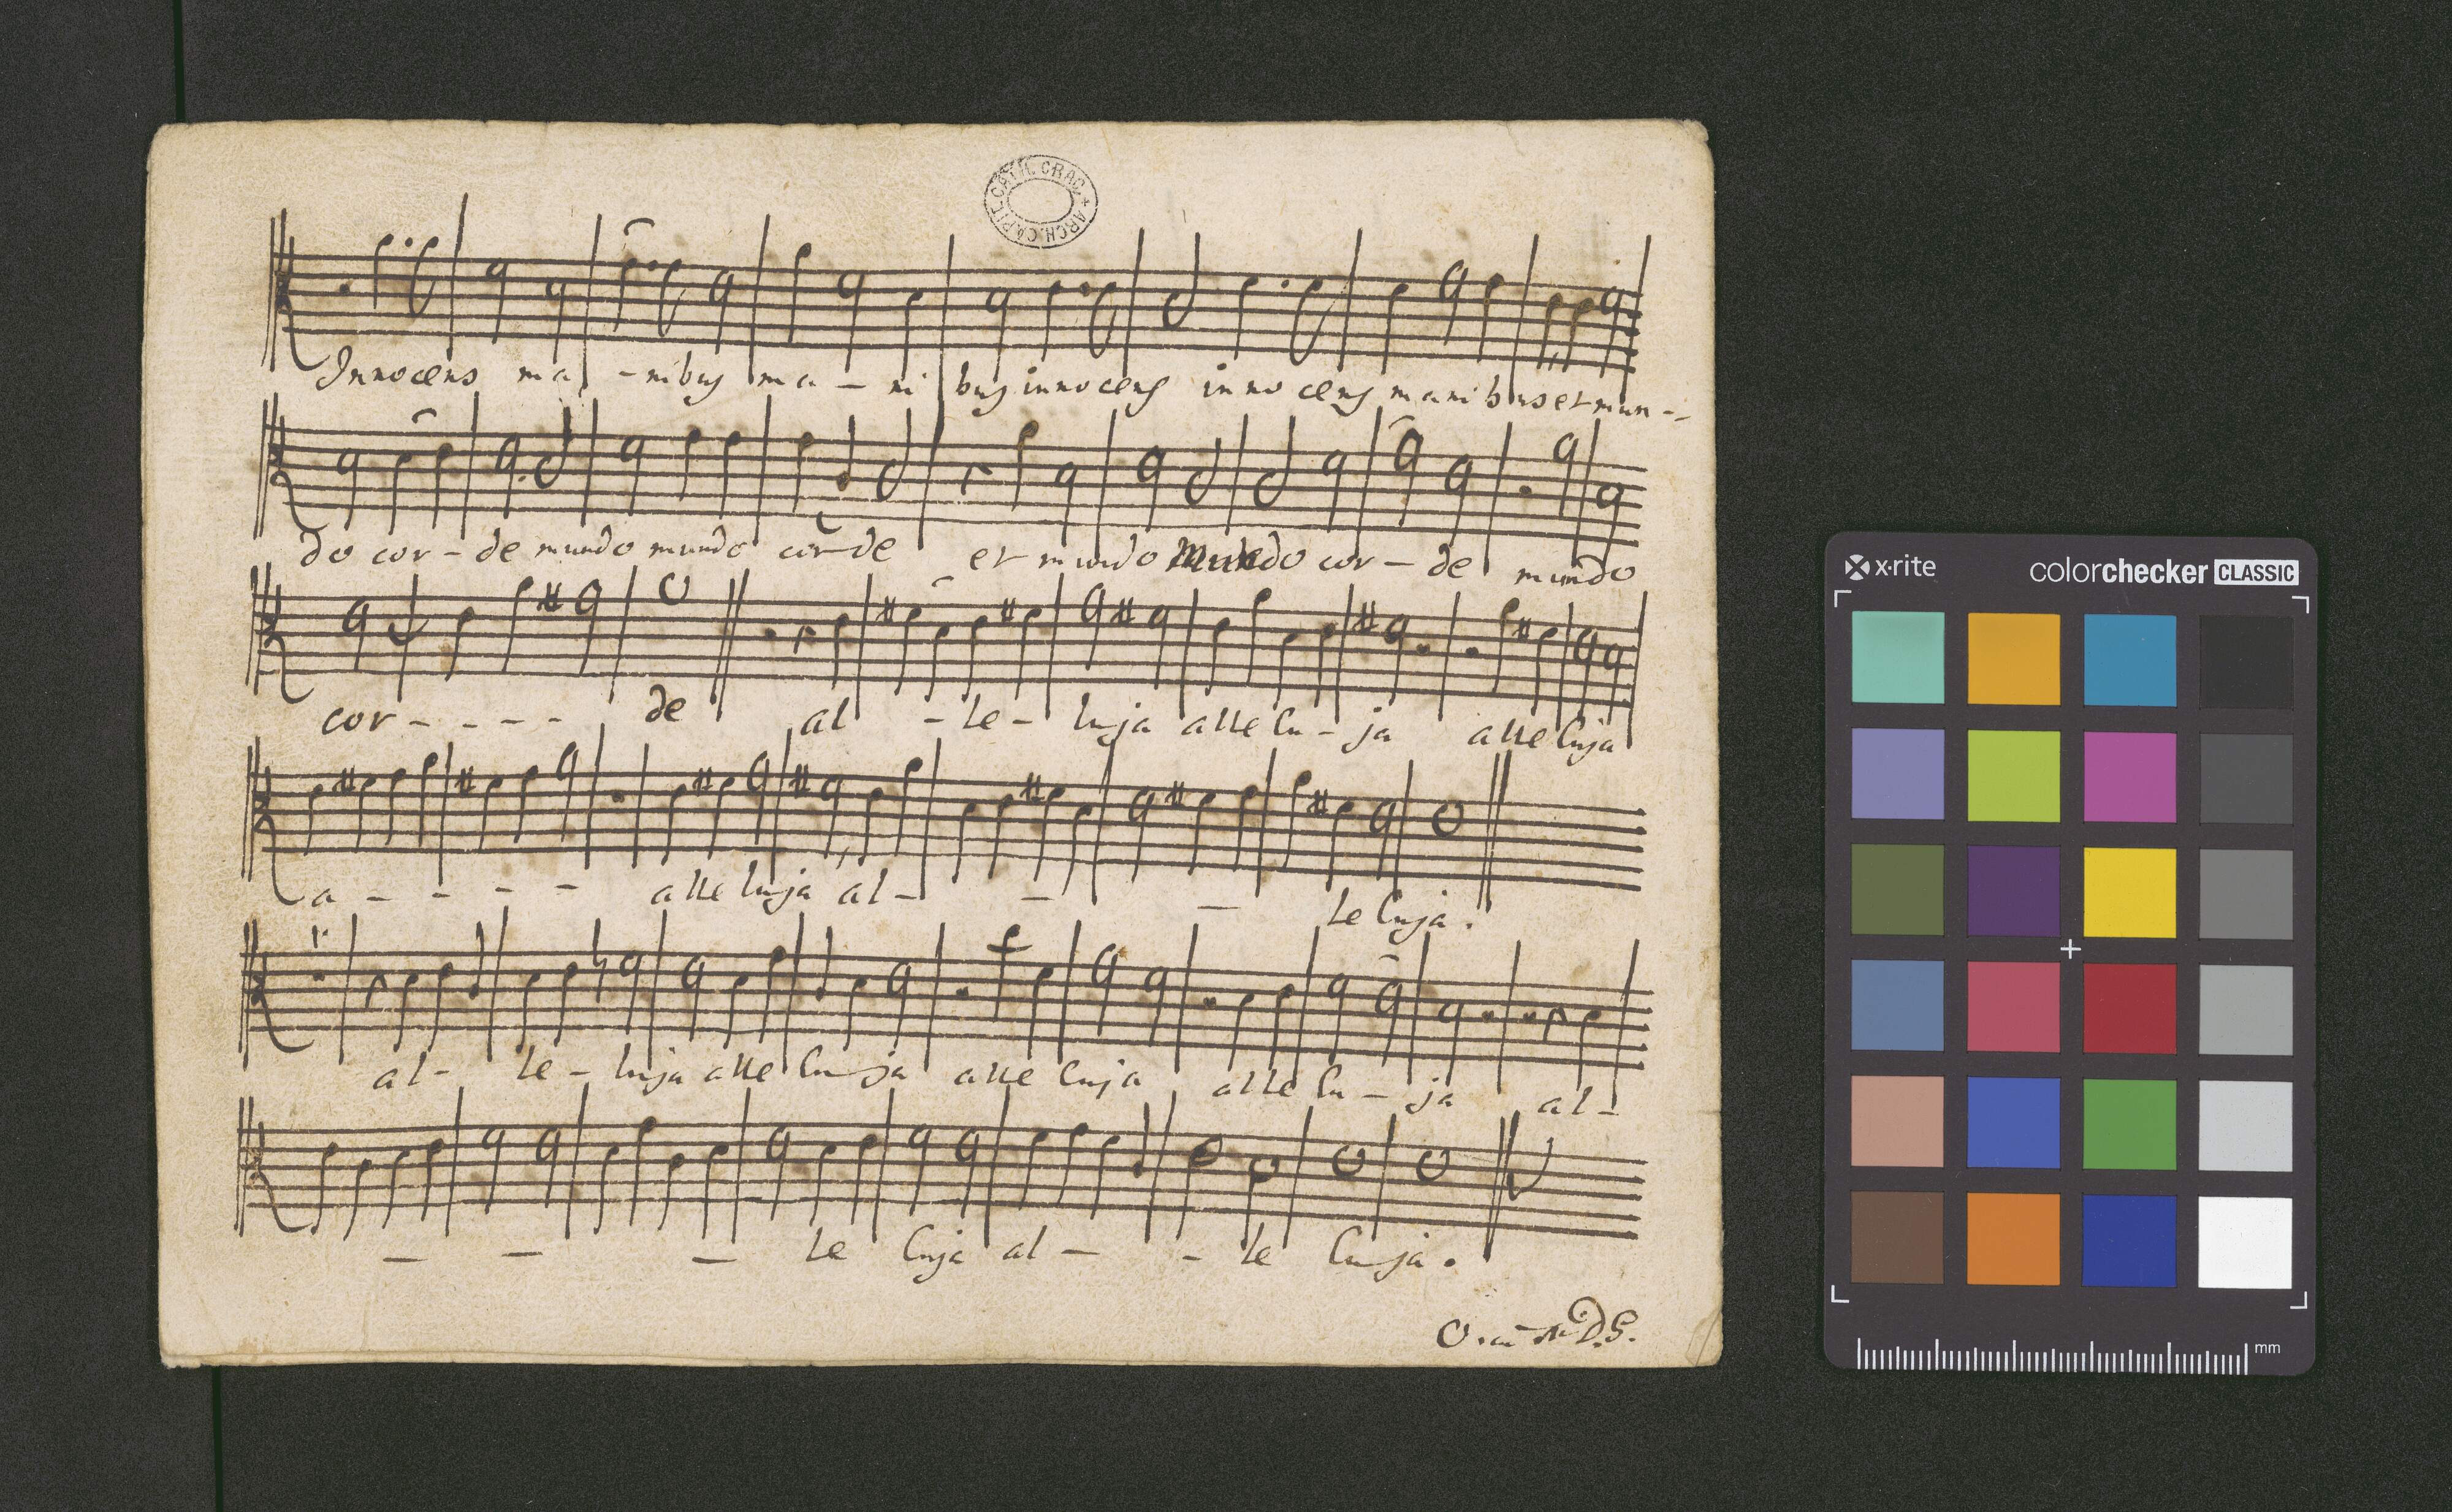 ARCH. CAPIT. CATH. CRAC.
Innocens ma - nibus ma - ni bus innocens in no cens mani bus et mun - -
do cor - de mundo mundo cor de et mundo Mundo cor - de mundo
cor - - - - de al - le - luja alle lu - ja alle luja
a - - - - alle luja al - - - le luja.
al - le - luja alle lu ja alle luja alle lu - ja al -
- - - le luja al - - le luja.
D.G.
x·rite colorchecker CLASSIC
mm